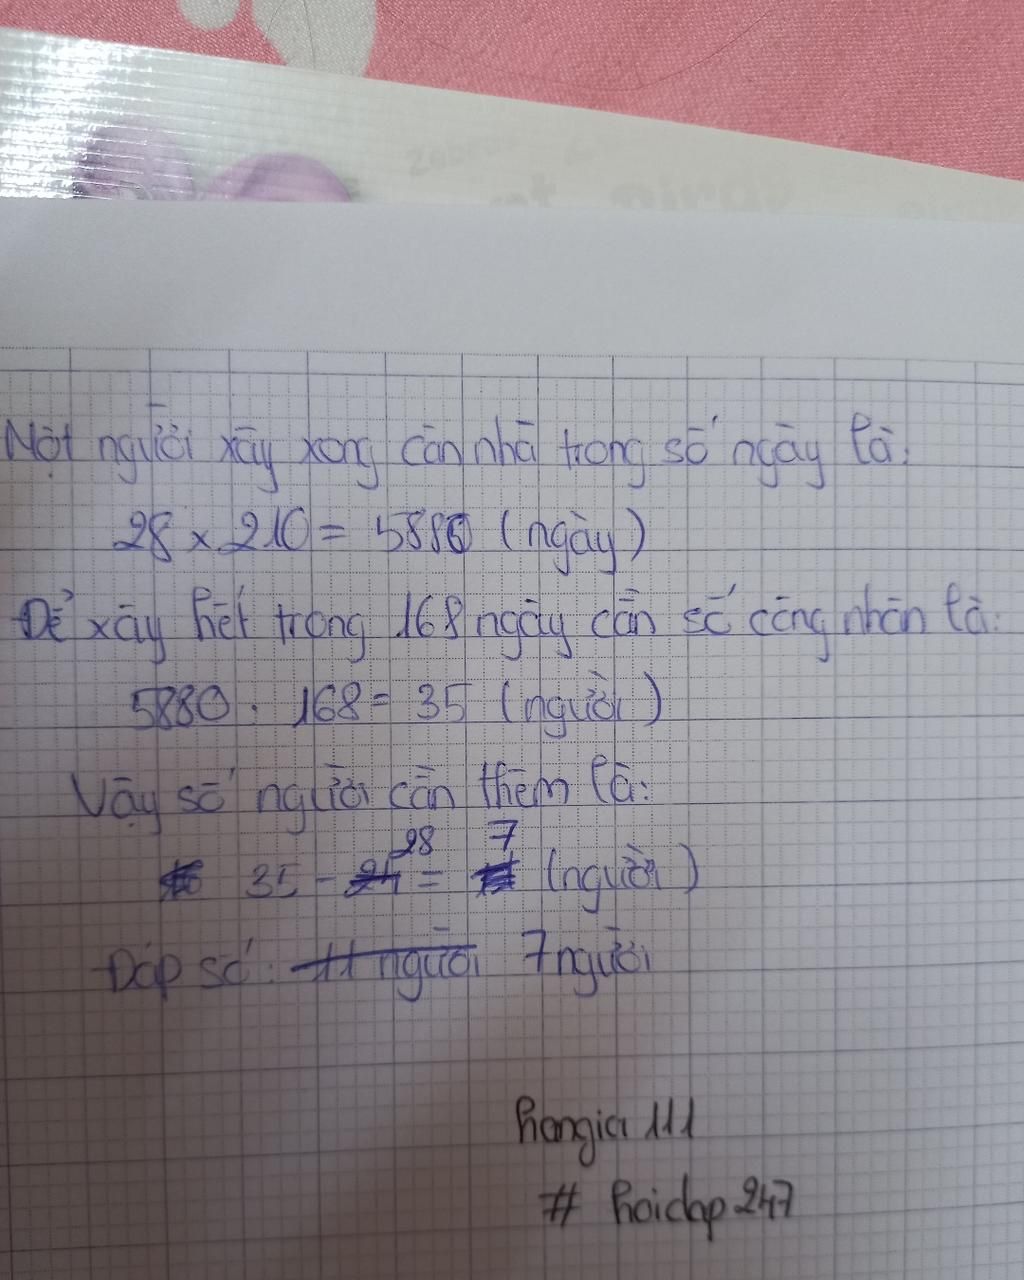 Một người xây xong căn nhà trong số ngày là:
28 x 210 = 5880 (ngày)
Để xây hết trong 168 ngày cần số công nhân là:
5880 : 168 = 35 (người)
Vậy số người cần thêm là:
35 - 28 = 7 (người)
Đáp số: 11 người 7 người
hongia 111
# hoidap247